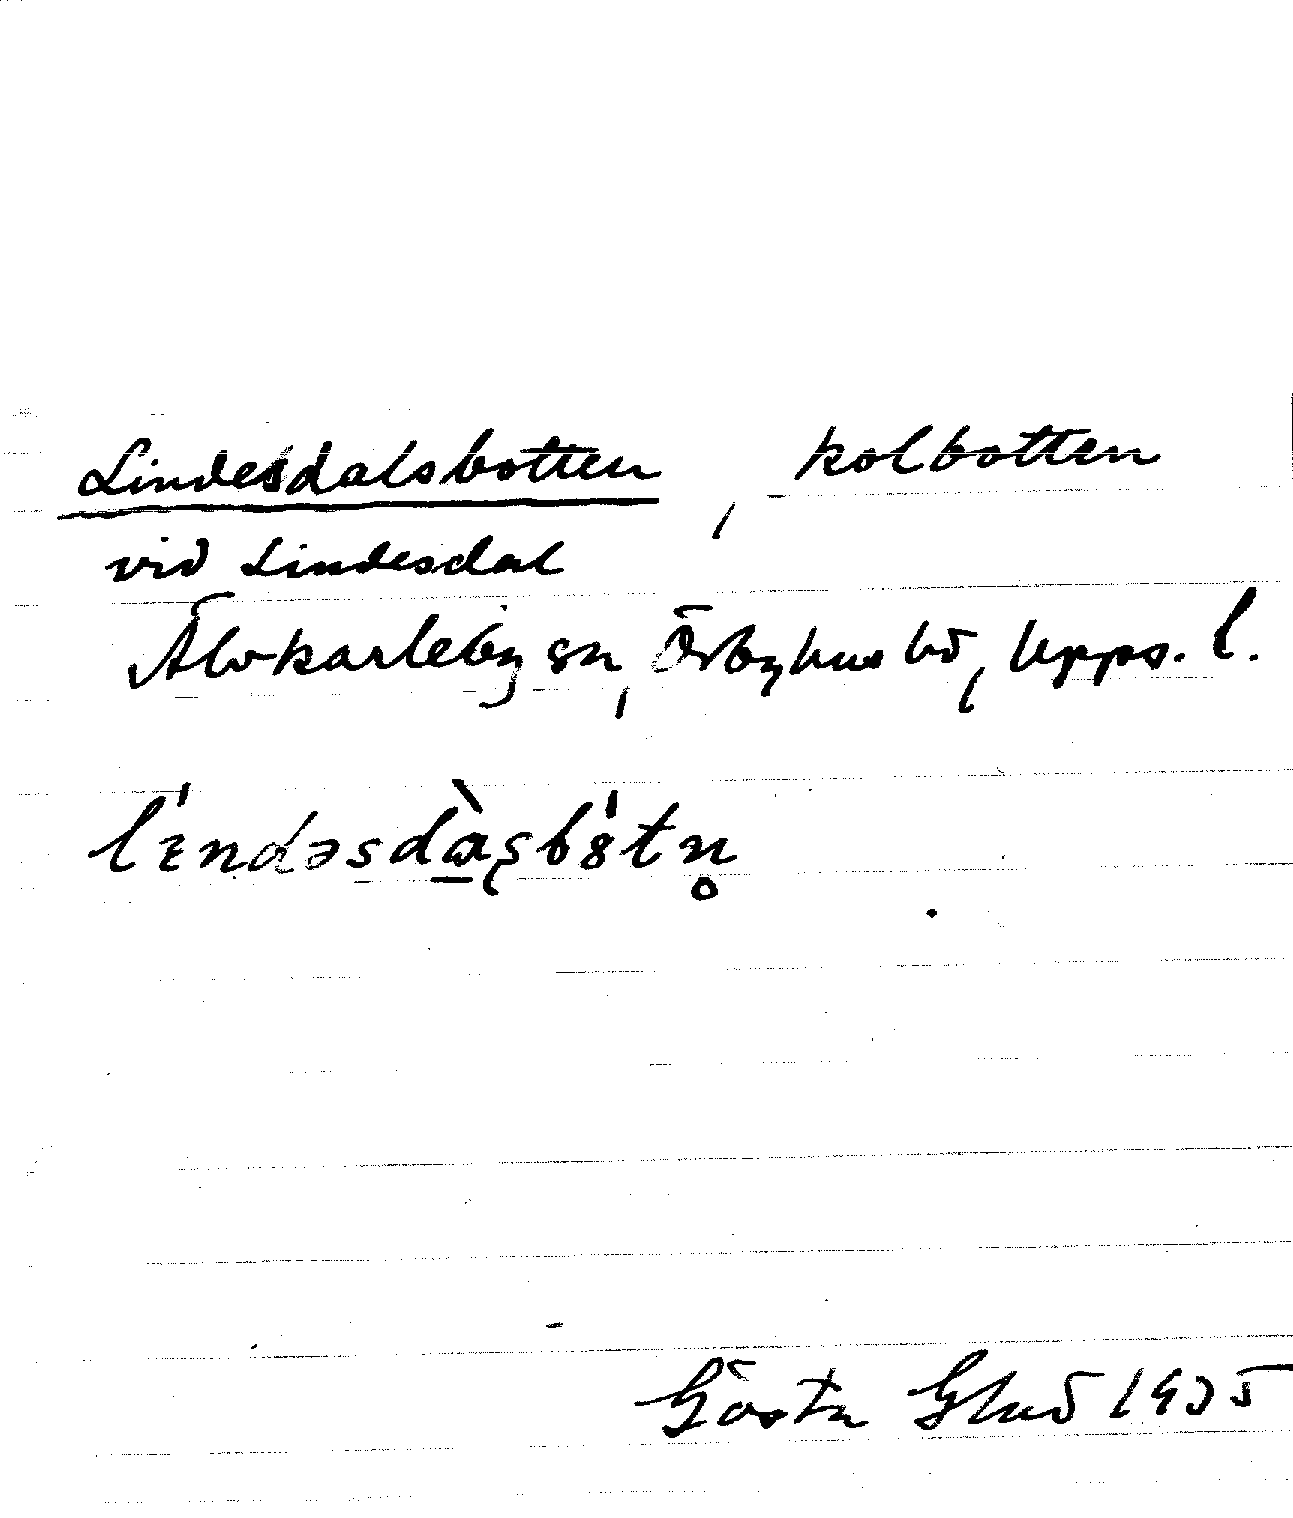 Lindesdalsbotten, kolbotten
vid Lindesdal
Älvkarleby sn, Örbyhus hd, Upps. l.
Gösta Glad 1935